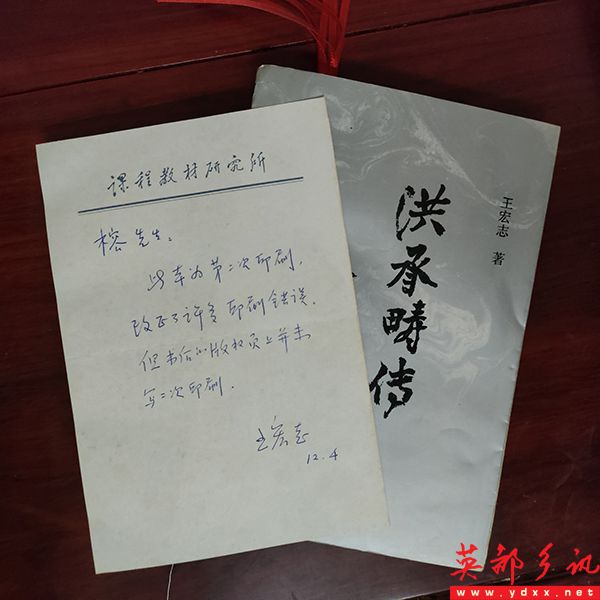 课程教材研究所
榕先生:
此本为第二次印刷,
改正了许多印刷错误.
但书后的版权页上并未
写二次印刷.
王宏志
12.4
洪承畴传
王宏志 著
英都乡讯
www.ydxx.net